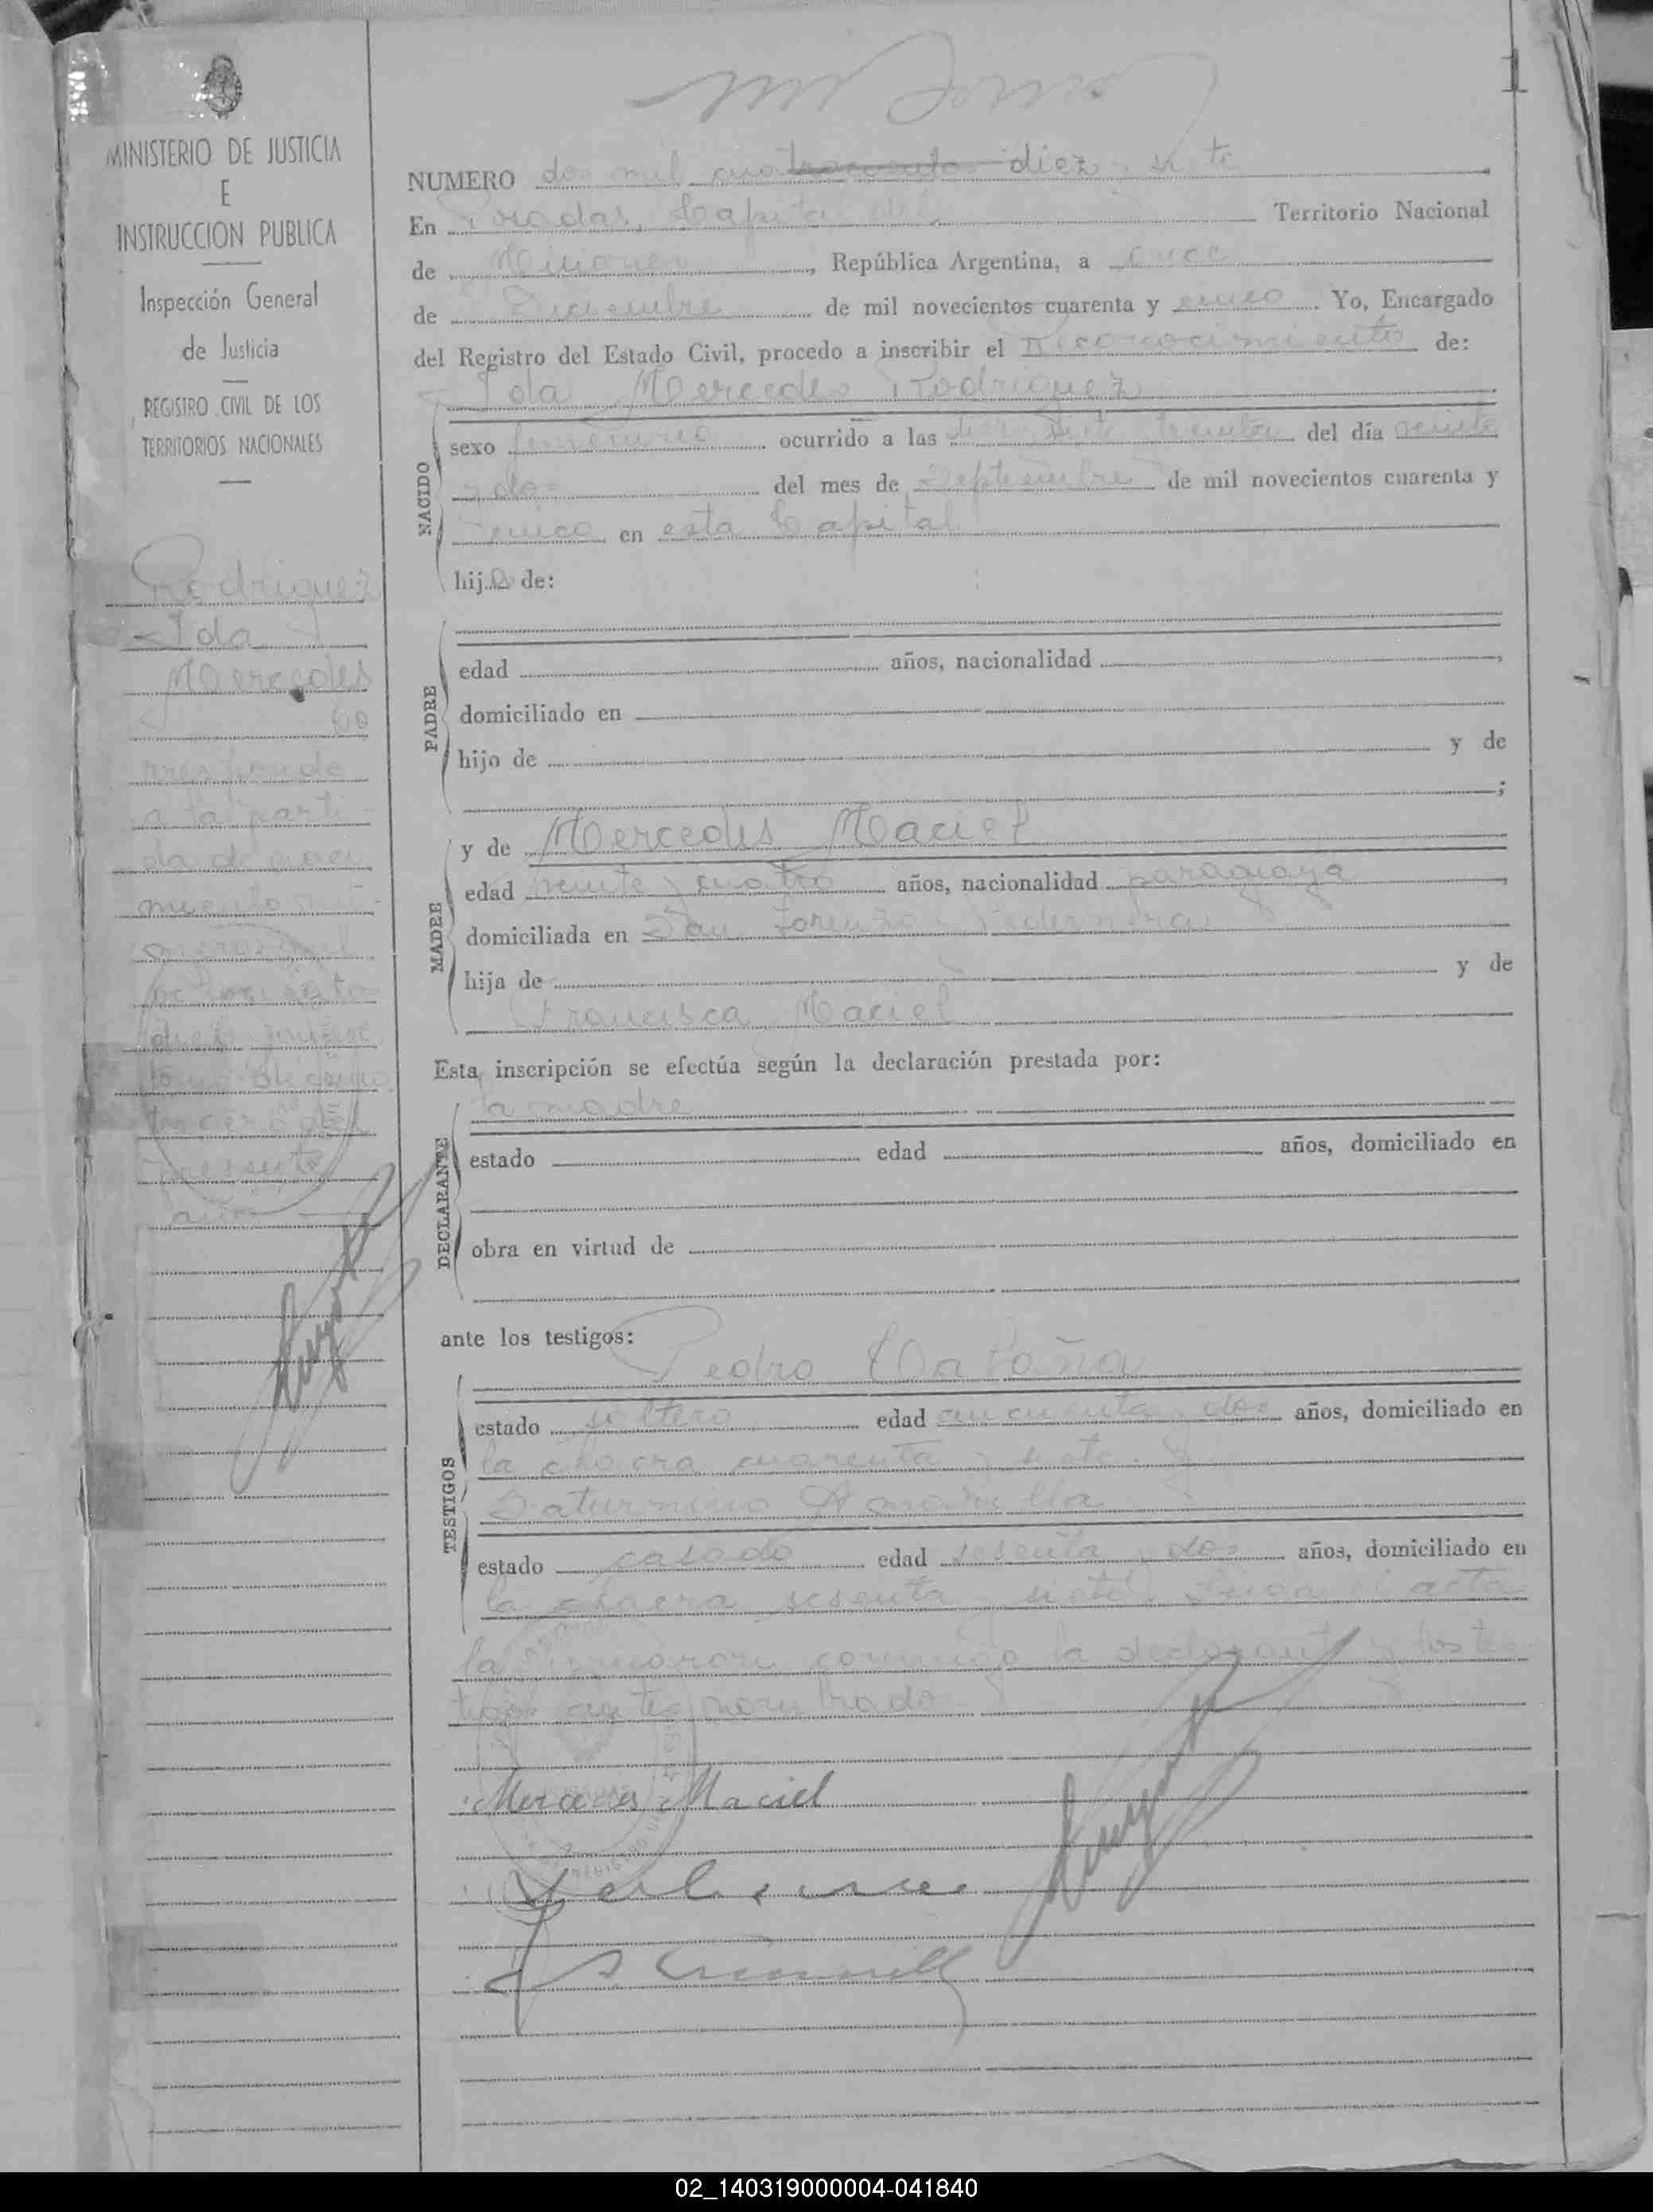 1
MINISTERIO DE JUSTICIA
E
INSTRUCCION PUBLICA
Inspección General
de Justicia
REGISTRO CIVIL DE LOS
TERRITORIOS NACIONALES
Rodriguez
Ida
Mercedes
a la parti
da de naci
miento nú-
tercero del
presente
año
NUMERO dos mil cuatrocientos diez y siete
En Posadas, Capital del Territorio Nacional
de Misiones, República Argentina, a once
de Diciembre de mil novecientos cuarenta y cinco. Yo, Encargado
del Registro del Estado Civil, procedo a inscribir el Reconocimiento de:
Ida Mercedes Rodriguez
NACIDO
sexo femenino ocurrido a las diez y siete treinta del día veinte
y dos del mes de Septiembre de mil novecientos cuarenta y
cinco en esta Capital
hija de:
PADRE
edad años, nacionalidad
domiciliado en
hijo de y de
;
MADRE
y de Mercedes Maciel
edad veinte y cuatro años, nacionalidad paraguaya
domiciliada en San Lorenzo y Pedernera
hija de y de
Francisca Maciel
Esta inscripción se efectúa según la declaración prestada por:
DECLARANTE
la madre
estado edad años, domiciliado en
obra en virtud de
ante los testigos:
TESTIGOS
Pedro
estado soltero edad cincuenta y dos años, domiciliado en
la chacra cuarenta y siete. y
Saturnino Amarilla
estado casado edad sesenta y dos años, domiciliado en
la chacra sesenta y siete. Leida el acta
la firmaron conmigo la declarante y los tes
tigos antes nombrados
Mercedes Maciel
02_140319000004-041840